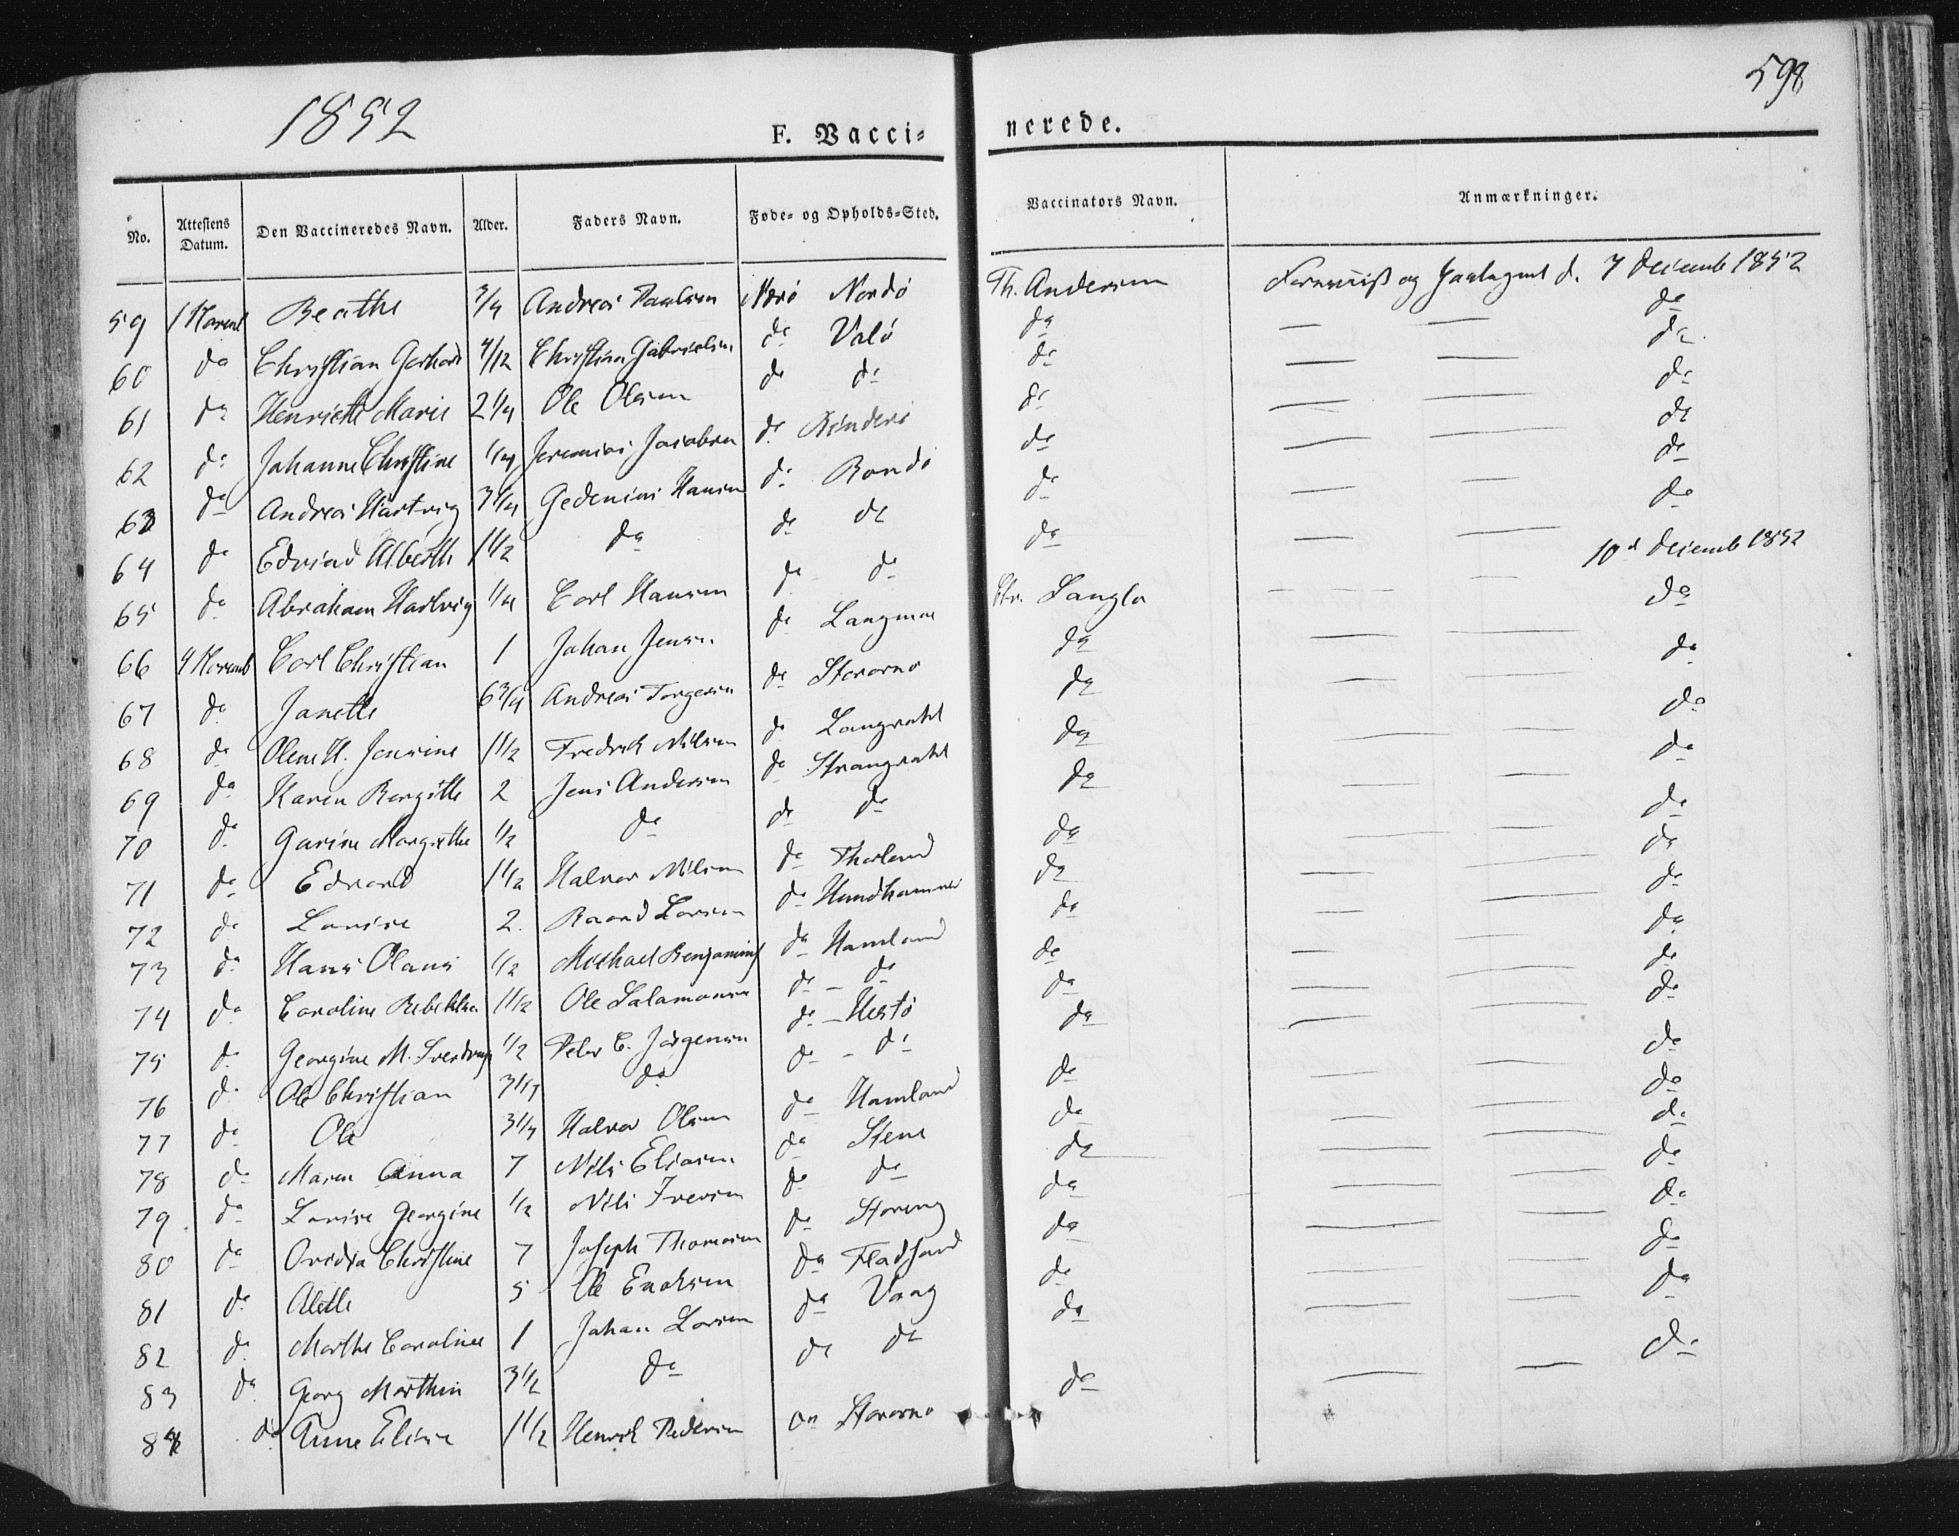 1852
598
F. Vacci-nerede.
No. | Attestens Datum. | Den Vaccineredes Navn. | Alder. | Faders Navn. | Føde- og Opholds-Sted. | Vaccinators Navn. | Anmærkninger.
59 | 1 | Beathe | 3/4 | Andreas Paulsen | Nærø Nordø | Th. Andersen | og d. 7 Decemb 1852
60 | do | Christian Gerhard | 4/12 | Christian Gabrielsen | do Valø | do | — — do
61 | do | Henriette Marie | 2 1/4 | Ole Olsen | do do | do | — — do
62 | do | Johanne Christine | 1/4 | Jeremias Jacobsen | do | do | — — do
63 | do | Andreas Hartvig | 3 1/4 | Gedenius Hansen | do Bondø | do | — — do
64 | do | Edviad Alberth | 1 1/2 | do | do do | do | — — do
65 | do | Abraham Hartvig | 1/4 | Carl Hansen | do do | do | — — do
66 | 4 Novemb | Carl Christian | 1 | Johan Jensen | do Langmoe | Chr. Langlo | — — 10d Decemb 1852
67 | do | Janette | 6 3/4 | Andreas Torgersen | do Storørnø | do | — — do
68 | do | Olene H. Jensine | 1 1/2 | Fredrik Nilsen | do Langvatnet | do | — — do
69 | do | Karen Bergitte | 2 | Jens Andersen | do | do | — — do
70 | do | Garine Margrethe | 1/2 | do | do do | do | — — do
71 | do | Edvard | 1 1/2 | Halvor Nilsen | do | do | — — do
72 | do | Lovise | 2. | Baard Larsen | do Hundhammer | do | — — do
73 | do | Hans Olaus | 1/2 | Michael Benjamins | do Hamland | do | — — do
74 | do | Caroline Rebekka | 1 1/2 | Ole Salamonsen | do - do | do | — — do
75 | do | Georgine M. | 1/2 | Peter C. Jørgensen | do - Hestø | do | — — do
76 | do | Ole Christian | 3 1/4 | do | do - do | do | — — do
77 | do | Ole | 3 1/4 | Halvor Olsen | do Hamland | do | — — do
78 | do | Maren Anna | 7 | Nils Eliasen | do Stene | do | — — do
79 | do | Lovise Georgine | 1/2 | Nils Iversen | do do | do | — — do
80 | do | Ovidia Christine | 7 | Joseph Thomasen | do Storeng | do | — — do
81 | do | Alette | 5 | Ole Enoksen | do | do | — — do
82 | do | Marthe Caroline | 1 | Johan Larsen | do Vaag | do | — — do
83 | do | Georg Marthin | 3 1/2 | do | do do | do | — — do
84 | do | Anne Elisie | 1 1/2 | Henrik Pedersen | do Storørnø | do | — — do